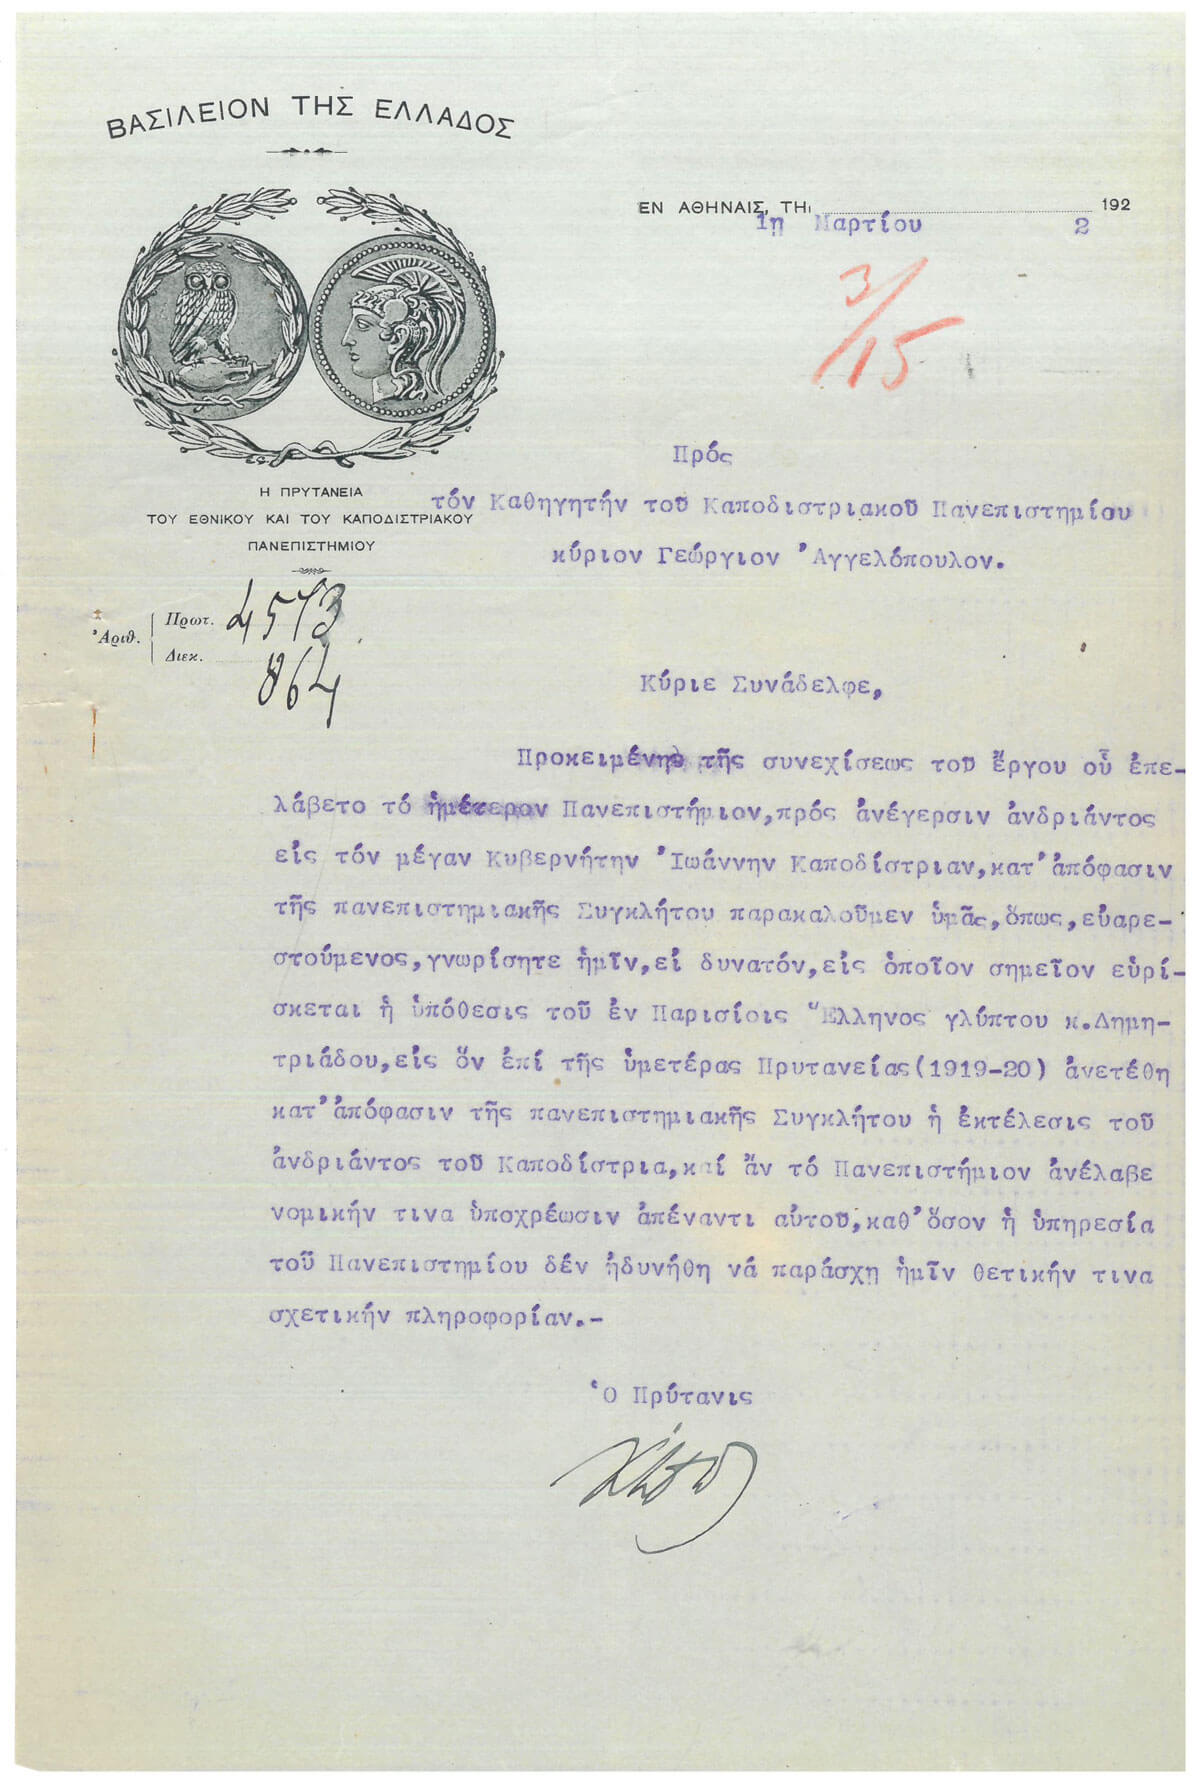 ΒΑΣΙΛΕΙΟΝ ΤΗΣ ΕΛΛΑΔΟΣ
ΕΝ ΑΘΗΝΑΙΣ, ΤΗι 192
1ῃ Μαρτίου 2
3/15
Η ΠΡΥΤΑΝΕΙΑ
ΤΟΥ ΕΘΝΙΚΟΥ ΚΑΙ ΤΟΥ ΚΑΠΟΔΙΣΤΡΙΑΚΟΥ
ΠΑΝΕΠΙΣΤΗΜΙΟΥ
Ἀριθ.
Πρωτ. 4573
Διεκ. 864
Πρός
τόν Καθηγητήν τοῦ Καποδιστριακοῦ Πανεπιστημίου
κύριον Γεώργιον Ἀγγελόπουλον.
Κύριε Συνάδελφε,
Προκειμένης τῆς συνεχίσεως τοῦ ἔργου οὗ ἐπε-
λάβετο τό ἡμέτερον Πανεπιστήμιον, πρός ἀνέγερσιν ἀνδριάντος
εἰς τόν μέγαν Κυβερνήτην Ἰωάννην Καποδίστριαν, κατ' ἀπόφασιν
τῆς πανεπιστημιακῆς Συγκλήτου παρακαλοῦμεν ὑμᾶς, ὅπως, εὐαρε-
στούμενος, γνωρίσητε ἡμῖν, εἰ δυνατόν, εἰς ὁποῖον σημεῖον εὑρί-
σκεται ἡ ὑπόθεσις τοῦ ἐν Παρισίοις Ἕλληνος γλύπτου κ. Δημη-
τριάδου, εἰς ὅν ἐπί τῆς ὑμετέρας Πρυτανείας (1919-20) ἀνετέθη
κατ' ἀπόφασιν τῆς πανεπιστημιακῆς Συγκλήτου ἡ ἐκτέλεσις τοῦ
ἀνδριάντος τοῦ Καποδίστρια, καί ἄν τό Πανεπιστήμιον ἀνέλαβε
νομικήν τινα ὑποχρέωσιν ἀπέναντι αὐτοῦ, καθ' ὅσον ἡ ὑπηρεσία
τοῦ Πανεπιστημίου δέν ἠδυνήθη νά παράσχῃ ἡμῖν θετικήν τινα
σχετικήν πληροφορίαν.-
Ὁ Πρύτανις